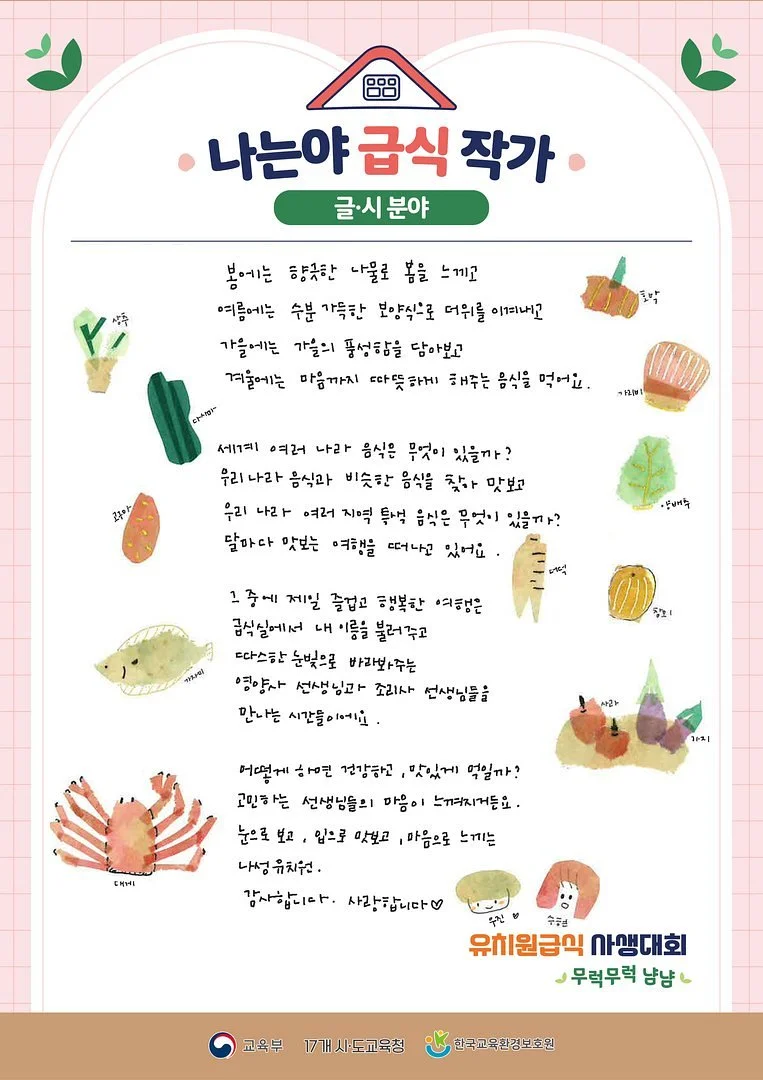 나는야 급식 작가
글·시 분야
봄에는 향긋한 나물로 봄을 느끼고
여름에는 수분 가득한 보양식으로 더위를 이겨내고
가을에는 가을의 풍성함을 담아보고
겨울에는 마음까지 따뜻하게 해주는 음식을 먹어요.
세계 여러 나라 음식은 무엇이 있을까?
우리나라 음식과 비슷한 음식을 찾아 맛보고
우리 나라 여러 지역 특색 음식은 무엇이 있을까?
달마다 맛보는 여행을 떠나고 있어요.
그 중에 제일 즐겁고 행복한 여행은
급식실에서 내 이름을 불러주고
따스한 눈빛으로 바라봐주는
영양사 선생님과 조리사 선생님들을
만나는 시간들이에요.
어떻게 하면 건강하고, 맛있게 먹일까?
고민하는 선생님들의 마음이 느껴지거든요.
눈으로 보고, 입으로 맛보고, 마음으로 느끼는
나성유치원.
감사합니다. 사랑합니다♡
상추
다시마
고구마
가자미
대게
호박
가리비
양배추
더덕
참외
사과
가지
우진
유치원급식 사생대회
무럭무럭 냠냠
교육부
17개 시·도교육청
한국교육환경보호원